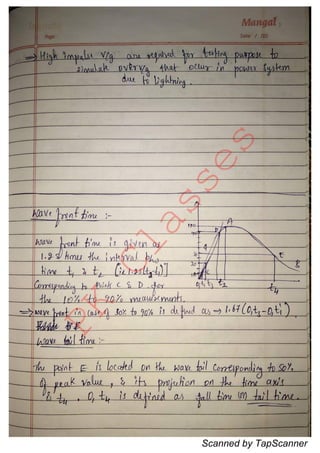 Mangal
Page:
Date: / /20
→ High Impulse V/g are required for testing purpose to
simulate overv/g that occur in power system
due to lightning.
wave front time :-
wave front time is given as
1.25 times the interval b/w
time t1 & t2 (ie 1.25(t2-t1))
Corresponding to points C & D for
the 10% to 90% measurements.
→ wave front in case of 30% to 90% is defined as → 1.67 (O1t2-O1t1').
wave tail time :-
The point E is located on the wave tail corresponding to 50%
of peak value, & its projection on the time axis
is t4. O1t4 is defined as fall time or tail time.
A
D
C
E
B
O1 t1 t2
t4
Classes
Scanned by TapScanner